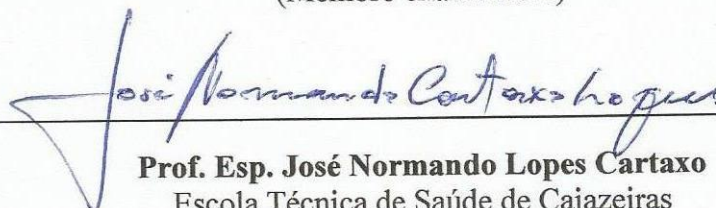 José Normando Cartaxo Lopes
Prof. Esp. José Normando Lopes Cartaxo
Escola Técnica de Saúde de Cajazeiras